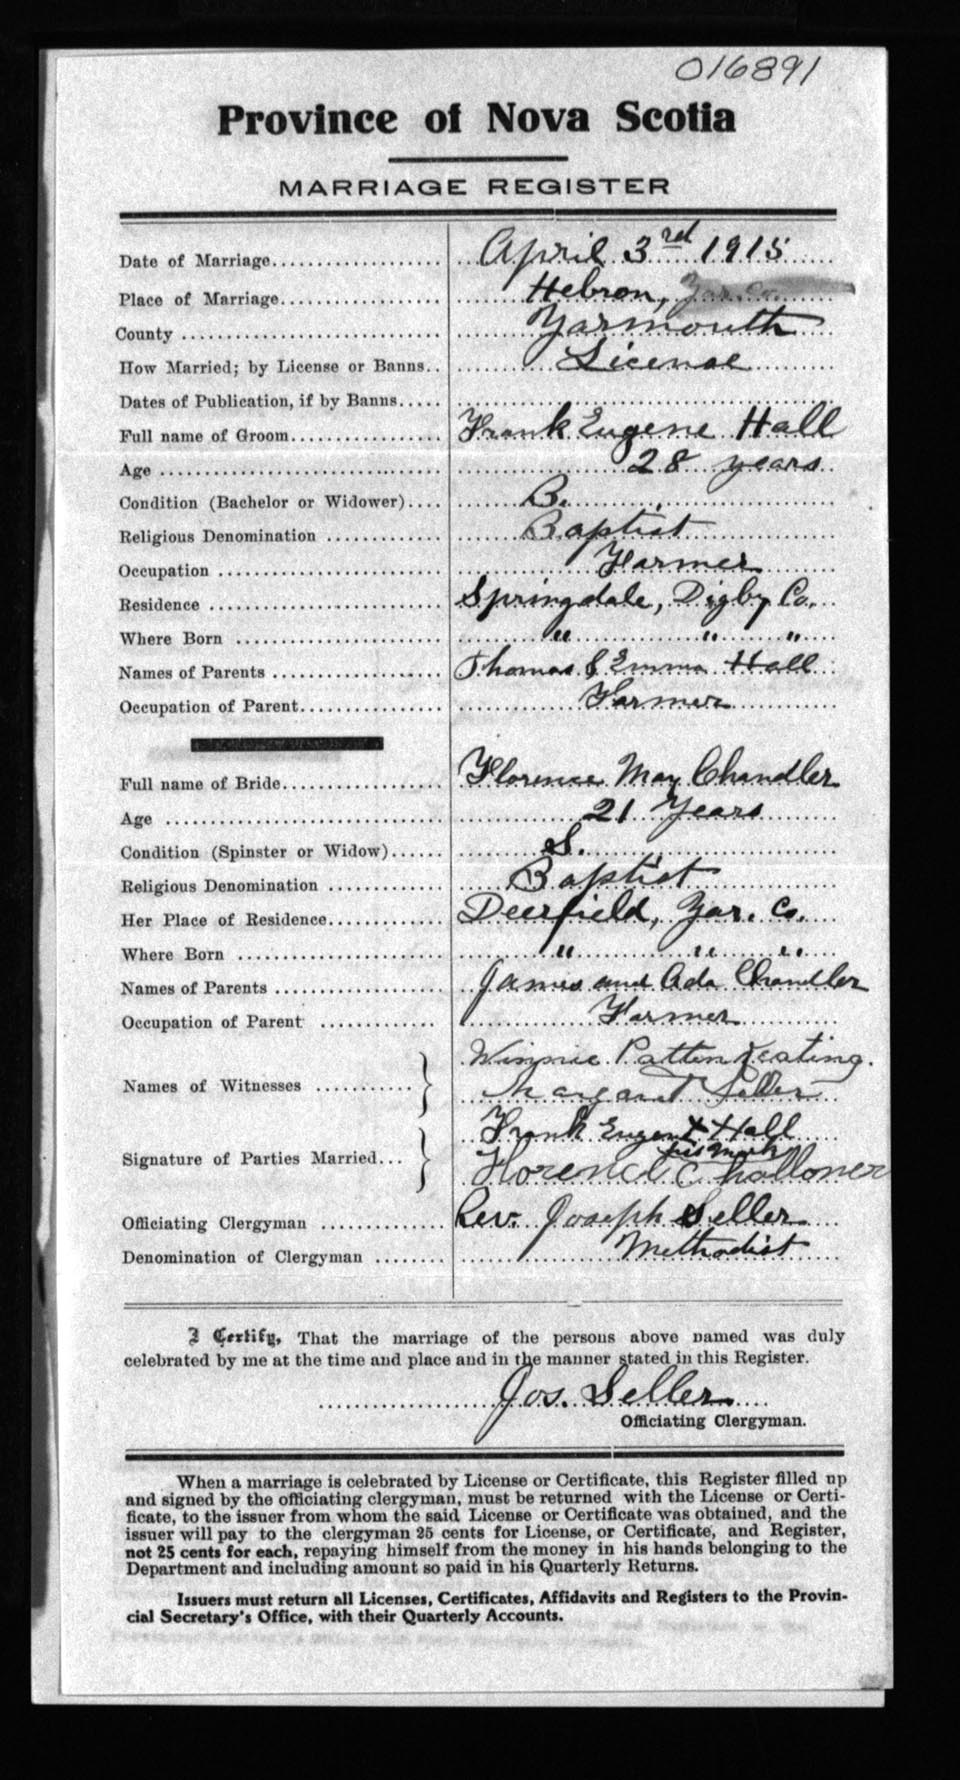 016891
Province of Nova Scotia
MARRIAGE REGISTER
Date of Marriage................... April 3rd 1915
Place of Marriage.................. Hebron, Yar. Co.
County ............................ Yarmouth
How Married; by License or Banns.. License
Dates of Publication, if by Banns.....
Full name of Groom................. Frank Eugene Hall
Age ............................... 28 years
Condition (Bachelor or Widower).... B.
Religious Denomination ............ Baptist
Occupation ........................ Farmer
Residence ......................... Springdale, Digby Co.
Where Born ........................ " " "
Names of Parents .................. Thomas & Emma Hall
Occupation of Parent............... Farmer
Full name of Bride................. Florence May Chandler
Age ............................... 21 Years
Condition (Spinster or Widow)...... S.
Religious Denomination ............ Baptist
Her Place of Residence............. Deerfield, Yar. Co.
Where Born ........................ " " "
Names of Parents .................. James and Ada Chandler
Occupation of Parent ............. Farmer
Winnie Patten Keating.
Names of Witnesses ...........
Margaret Seller
Frank Eugene X Hall
his mark
Signature of Parties Married...
Florence Challoner
Officiating Clergyman ............. Rev. Joseph Seller
Denomination of Clergyman ........ Methodist
I Certify, That the marriage of the persons above named was duly
celebrated by me at the time and place and in the manner stated in this Register.
Jos. Seller
Officiating Clergyman.
When a marriage is celebrated by License or Certificate, this Register filled up
and signed by the officiating clergyman, must be returned with the License or Certi-
ficate, to the issuer from whom the said License or Certificate was obtained, and the
issuer will pay to the clergyman 25 cents for License, or Certificate, and Register,
not 25 cents for each, repaying himself from the money in his hands belonging to the
Department and including amount so paid in his Quarterly Returns.
Issuers must return all Licenses, Certificates, Affidavits and Registers to the Provin-
cial Secretary's Office, with their Quarterly Accounts.